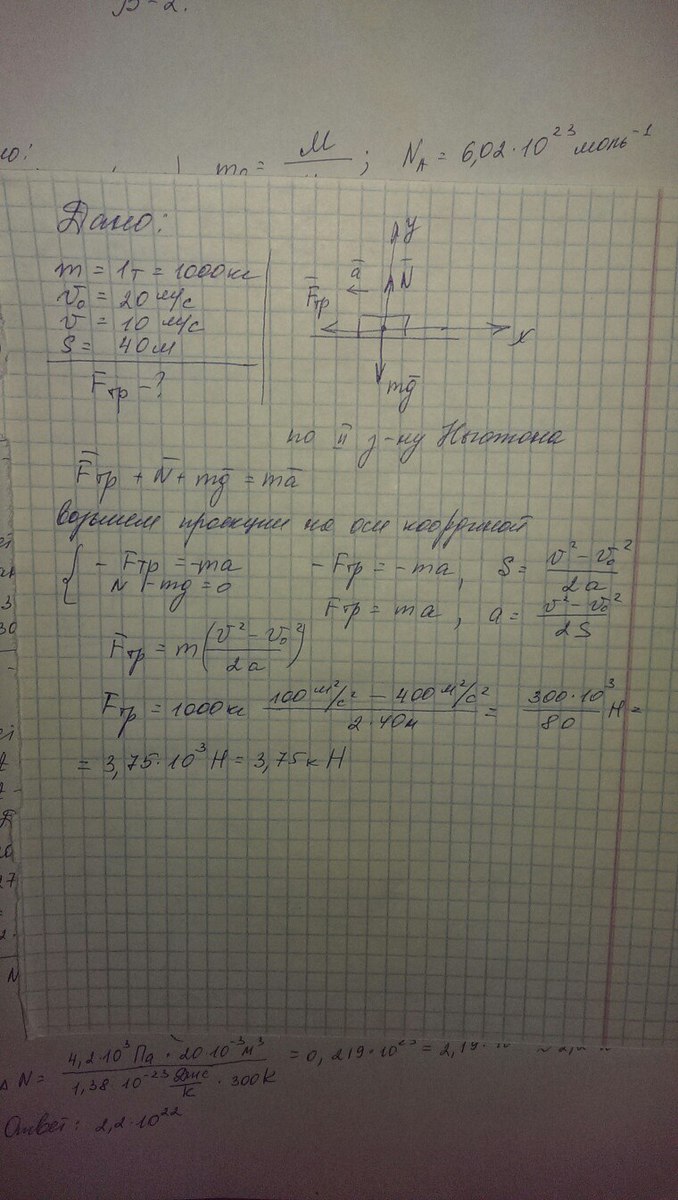 В-2.
m₀ = M/ ; N_A = 6,02·10²³ моль⁻¹
Дано:
m = 1т = 1000кг
v̄₀ = 20 м/с
v̄ = 10 м/с
S = 40м
F̄тр -?
y
ā
N̄
F̄тр
x
mḡ
по II з-ну Ньютона
F̄тр + N̄ + mḡ = mā
возьмем проекции на оси координат
{ - Fтр = -ma
N - mg = 0
- Fтр = - ma, S = (v² - v₀²)/2a
Fтр = ma, a = (v² - v₀²)/2S
Fтр = m((v² - v₀²)/2a)
Fтр = 1000кг (100 м²/с² - 400 м²/с²)/(2·40м) = (300·10³)/80 Н =
= 3,75·10³ Н = 3,75кН
N = (4,2·10³ Па · 20·10⁻³ м³)/(1,38·10⁻²³ Дж/К · 300К) = 0,219·10²³ = 2,19·10
Ответ: 2,2·10²²